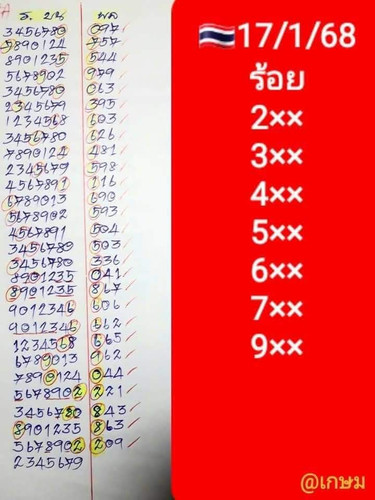 ร. บน ผล
3456780 097
5890124 757
8901235 544
5678902 979
3456780 063
2345679 395
1234568 603
3456780 626
7890124 481
2345679 598
4567891 116
6789013 690
5678902 593
4567891 504
3456780 503
3456780 336
8901235 041
8901235 867
9012346 606
9012346 662
1234568 665
6789013 962
7890124 044
5678902 221
3456780 843
8901235 863
5678902 209
2345679
17/1/68
ร้อย
2××
3××
4××
5××
6××
7××
9××
@เกษม